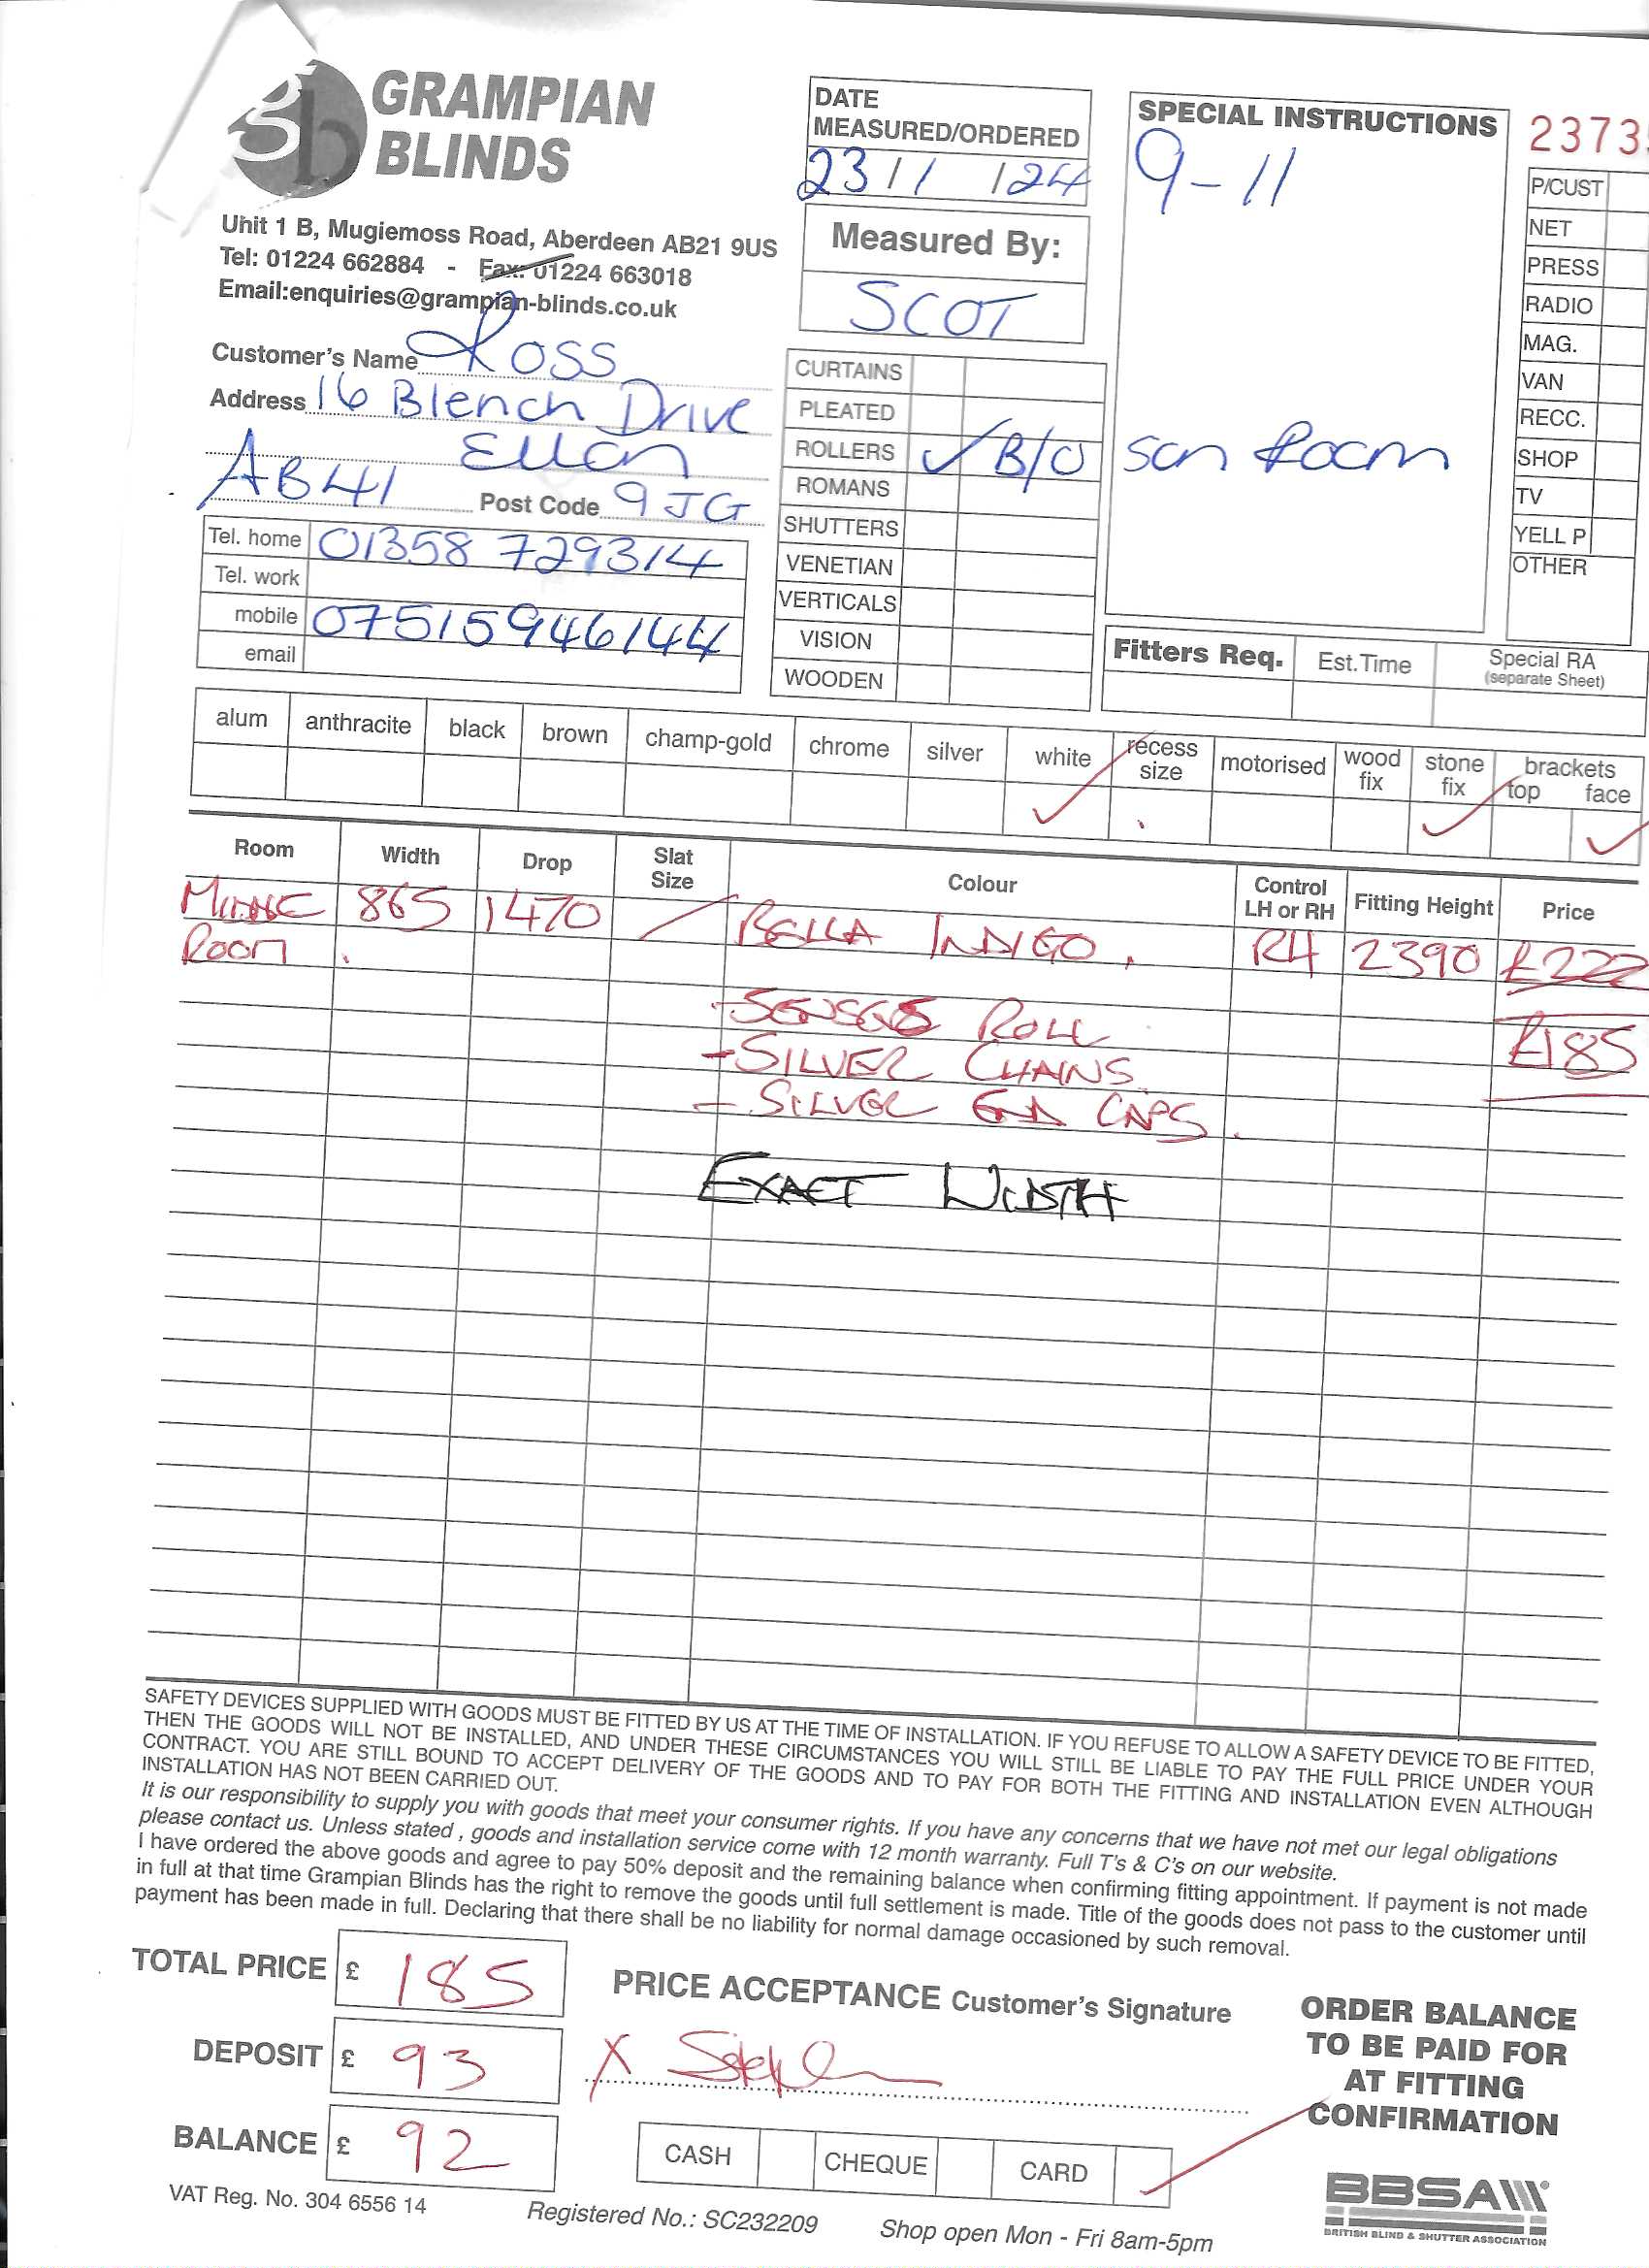 GRAMPIAN
BLINDS
Unit 1 B, Mugiemoss Road, Aberdeen AB21 9US
Tel: 01224 662884 - Fax: 01224 663018
Email:enquiries@grampian-blinds.co.uk
Customer's Name Ross
Address 16 Blench Drive
Ellon
AB41 Post Code 9JG
Tel. home 01358 729314
Tel. work
mobile 07515946144
email
DATE
MEASURED/ORDERED
23/1 /24
Measured By:
SCOT
CURTAINS
PLEATED
ROLLERS ✓ B/O Sun Room
ROMANS
SHUTTERS
VENETIAN
VERTICALS
VISION
WOODEN
SPECIAL INSTRUCTIONS
9-11
2373
P/CUST
NET
PRESS
RADIO
MAG.
VAN
RECC.
SHOP
TV
YELL P
OTHER
Fitters Req. Est.Time Special RA
(separate Sheet)
alum anthracite black brown champ-gold chrome silver white recess size motorised wood fix stone fix brackets top face
Room Width Drop Slat Size Colour Control LH or RH Fitting Height Price
865 1470 BELLA INDIGO RH 2390 £222
ROOM
- SENSES ROLL £185
- SILVER CHAINS
- SILVER END CAPS.
EXACT WIDTH
SAFETY DEVICES SUPPLIED WITH GOODS MUST BE FITTED BY US AT THE TIME OF INSTALLATION. IF YOU REFUSE TO ALLOW A SAFETY DEVICE TO BE FITTED,
THEN THE GOODS WILL NOT BE INSTALLED, AND UNDER THESE CIRCUMSTANCES YOU WILL STILL BE LIABLE TO PAY THE FULL PRICE UNDER YOUR
CONTRACT. YOU ARE STILL BOUND TO ACCEPT DELIVERY OF THE GOODS AND TO PAY FOR BOTH THE FITTING AND INSTALLATION EVEN ALTHOUGH
INSTALLATION HAS NOT BEEN CARRIED OUT.
It is our responsibility to supply you with goods that meet your consumer rights. If you have any concerns that we have not met our legal obligations
please contact us. Unless stated , goods and installation service come with 12 month warranty. Full T's & C's on our website.
I have ordered the above goods and agree to pay 50% deposit and the remaining balance when confirming fitting appointment. If payment is not made
in full at that time Grampian Blinds has the right to remove the goods until full settlement is made. Title of the goods does not pass to the customer until
payment has been made in full. Declaring that there shall be no liability for normal damage occasioned by such removal.
TOTAL PRICE £ 185
DEPOSIT £ 93
BALANCE £ 92
PRICE ACCEPTANCE Customer's Signature
X
CASH CHEQUE CARD
ORDER BALANCE
TO BE PAID FOR
AT FITTING
CONFIRMATION
BBSA
BRITISH BLIND & SHUTTER ASSOCIATION
VAT Reg. No. 304 6556 14
Registered No.: SC232209
Shop open Mon - Fri 8am-5pm